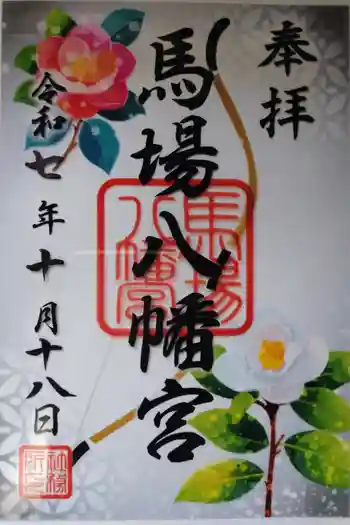 奉拝
馬場八幡宮
令和七年十月十八日
馬場
八幡宮